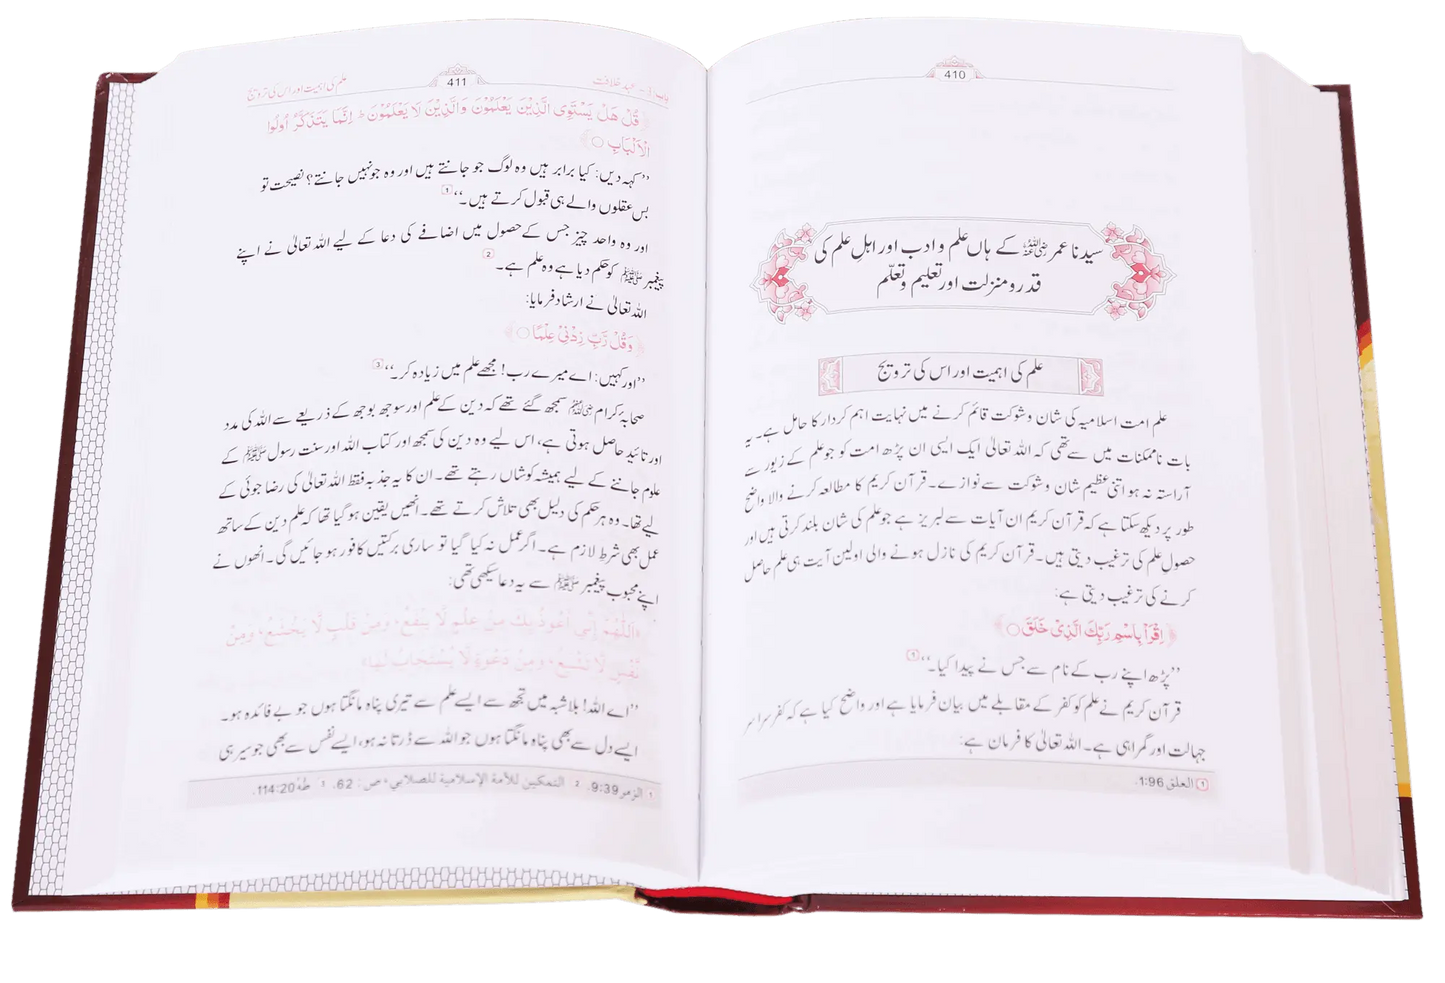 410
سیدنا عمر رضی اللہ عنہ کے ہاں علم و ادب اور اہلِ علم کی
قدر و منزلت اور تعلیم و تعلّم
علم کی اہمیت اور اس کی ترویج
علم امت اسلامیہ کی شان و شوکت قائم کرنے میں نہایت اہم کردار کا حامل ہے۔ یہ
بات ناممکنات میں سے تھی کہ اللہ تعالیٰ ایک ایسی ان پڑھ امت کو جو علم کے زیور سے
آراستہ نہ ہو اتنی عظیم شان و شوکت سے نوازے۔ قرآن کریم کا مطالعہ کرنے والا واضح
طور پر دیکھ سکتا ہے کہ قرآن کریم ان آیات سے لبریز ہے جو علم کی شان بلند کرتی ہیں اور
حصولِ علم کی ترغیب دیتی ہیں۔ قرآن کریم کی نازل ہونے والی اولین آیت ہی علم حاصل
کرنے کی ترغیب دیتی ہے:
﴿اِقْرَاْ بِاسْمِ رَبِّكَ الَّذِیْ خَلَقَ ○﴾
’’پڑھ اپنے رب کے نام سے جس نے پیدا کیا۔‘‘ 1
قرآن کریم نے علم کو کفر کے مقابلے میں بیان فرمایا ہے اور واضح کیا ہے کہ کفر سراسر
جہالت اور گمراہی ہے۔ اللہ تعالیٰ کا فرمان ہے:
1 العلق 1:96.
باب: 3 - عہد خلافت 411 علم کی اہمیت اور اس کی ترویج
﴿قُلْ هَلْ یَسْتَوِی الَّذِیْنَ یَعْلَمُوْنَ وَالَّذِیْنَ لَا یَعْلَمُوْنَ ؕ اِنَّمَا یَتَذَكَّرُ اُولُوا
الْاَلْبَابِ ○﴾
’’کہہ دیں: کیا برابر ہیں وہ لوگ جو جانتے ہیں اور وہ جو نہیں جانتے؟ نصیحت تو
بس عقلوں والے ہی قبول کرتے ہیں۔‘‘ 1
اور وہ واحد چیز جس کے حصول میں اضافے کی دعا کے لیے اللہ تعالیٰ نے اپنے
پیغمبر ﷺ کو حکم دیا ہے وہ علم ہے۔ 2
اللہ تعالیٰ نے ارشاد فرمایا:
﴿وَقُلْ رَّبِّ زِدْنِیْ عِلْمًا ○﴾
’’اور کہیں: اے میرے رب! مجھے علم میں زیادہ کر۔‘‘ 3
صحابۂ کرام رضی اللہ عنہم سمجھ گئے تھے کہ دین کے علم اور سوجھ بوجھ کے ذریعے سے اللہ کی مدد
اور تائید حاصل ہوتی ہے، اس لیے وہ دین کی سمجھ اور کتاب اللہ اور سنت رسول ﷺ کے
علوم جاننے کے لیے ہمیشہ کوشاں رہتے تھے۔ ان کا یہ جذبہ فقط اللہ تعالیٰ کی رضا جوئی کے
لیے تھا۔ وہ ہر حکم کی دلیل بھی تلاش کرتے تھے۔ انھیں یقین ہو گیا تھا کہ علم دین کے ساتھ
عمل بھی شرطِ لازم ہے۔ اگر عمل نہ کیا گیا تو ساری برکتیں کافور ہو جائیں گی۔ انھوں نے
اپنے محبوب پیغمبر ﷺ سے یہ دعا سیکھی تھی:
«اَللّٰهُمَّ إِنِّي أَعُوذُ بِكَ مِنْ عِلْمٍ لَّا يَنْفَعُ، وَمِنْ قَلْبٍ لَّا يَخْشَعُ، وَمِنْ
نَفْسٍ لَّا تَشْبَعُ، وَمِنْ دَعْوَةٍ لَّا يُسْتَجَابُ لَهَا»
’’اے اللہ! بلاشبہ میں تجھ سے ایسے علم سے تیری پناہ مانگتا ہوں جو بے فائدہ ہو۔
ایسے دل سے بھی پناہ مانگتا ہوں جو اللہ سے ڈرتا نہ ہو، ایسے نفس سے بھی جو سیر ہی
1 الزمر 9:39. 2 التمكين للأمة الإسلامية للصلابي، ص: 62. 3 طٰهٰ 114:20.